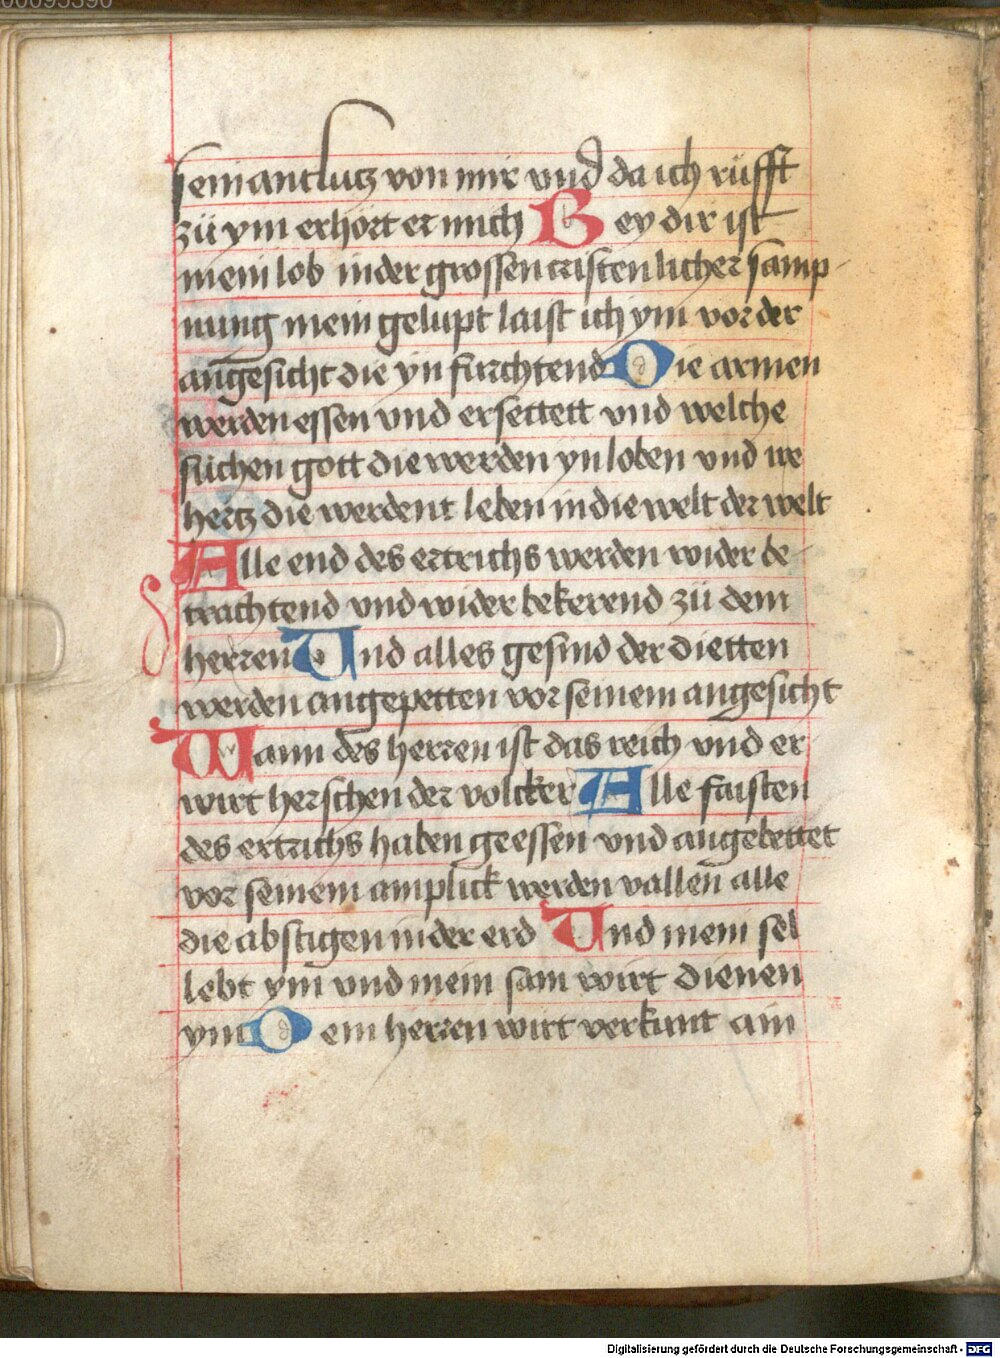 00095390
sein antlutz von mir vnd da ich rüfft
zü ym erhört er mich Bey dir ist
mein lob in der grossen cristenlicher samp
nung mein gelupt laist ich ym vor der
angesicht die yn furchtend Die armen
werden essen vnd ersettett vnd welche
süchen gott die werden yn loben vnd ire
hertz die werdent leben in die welt der welt
Alle end des ertrichs werden wider be
trachtend vnd wider bekerend zü dem
herren Und alles gesind der dietten
werden angepetten vor seinem angesicht
Wann des herren ist das reich vnd er
wirt herschen der volcker Alle faisten
des ertrichs haben geessen vnd angebettet
vor seinem amplick werden vallen alle
die abstigen in der erd Und mein sel
lebt ym vnd mein sam wirt dienen
ym Dem herren wirt verkunt ain
Digitalisierung gefördert durch die Deutsche Forschungsgemeinschaft - DFG